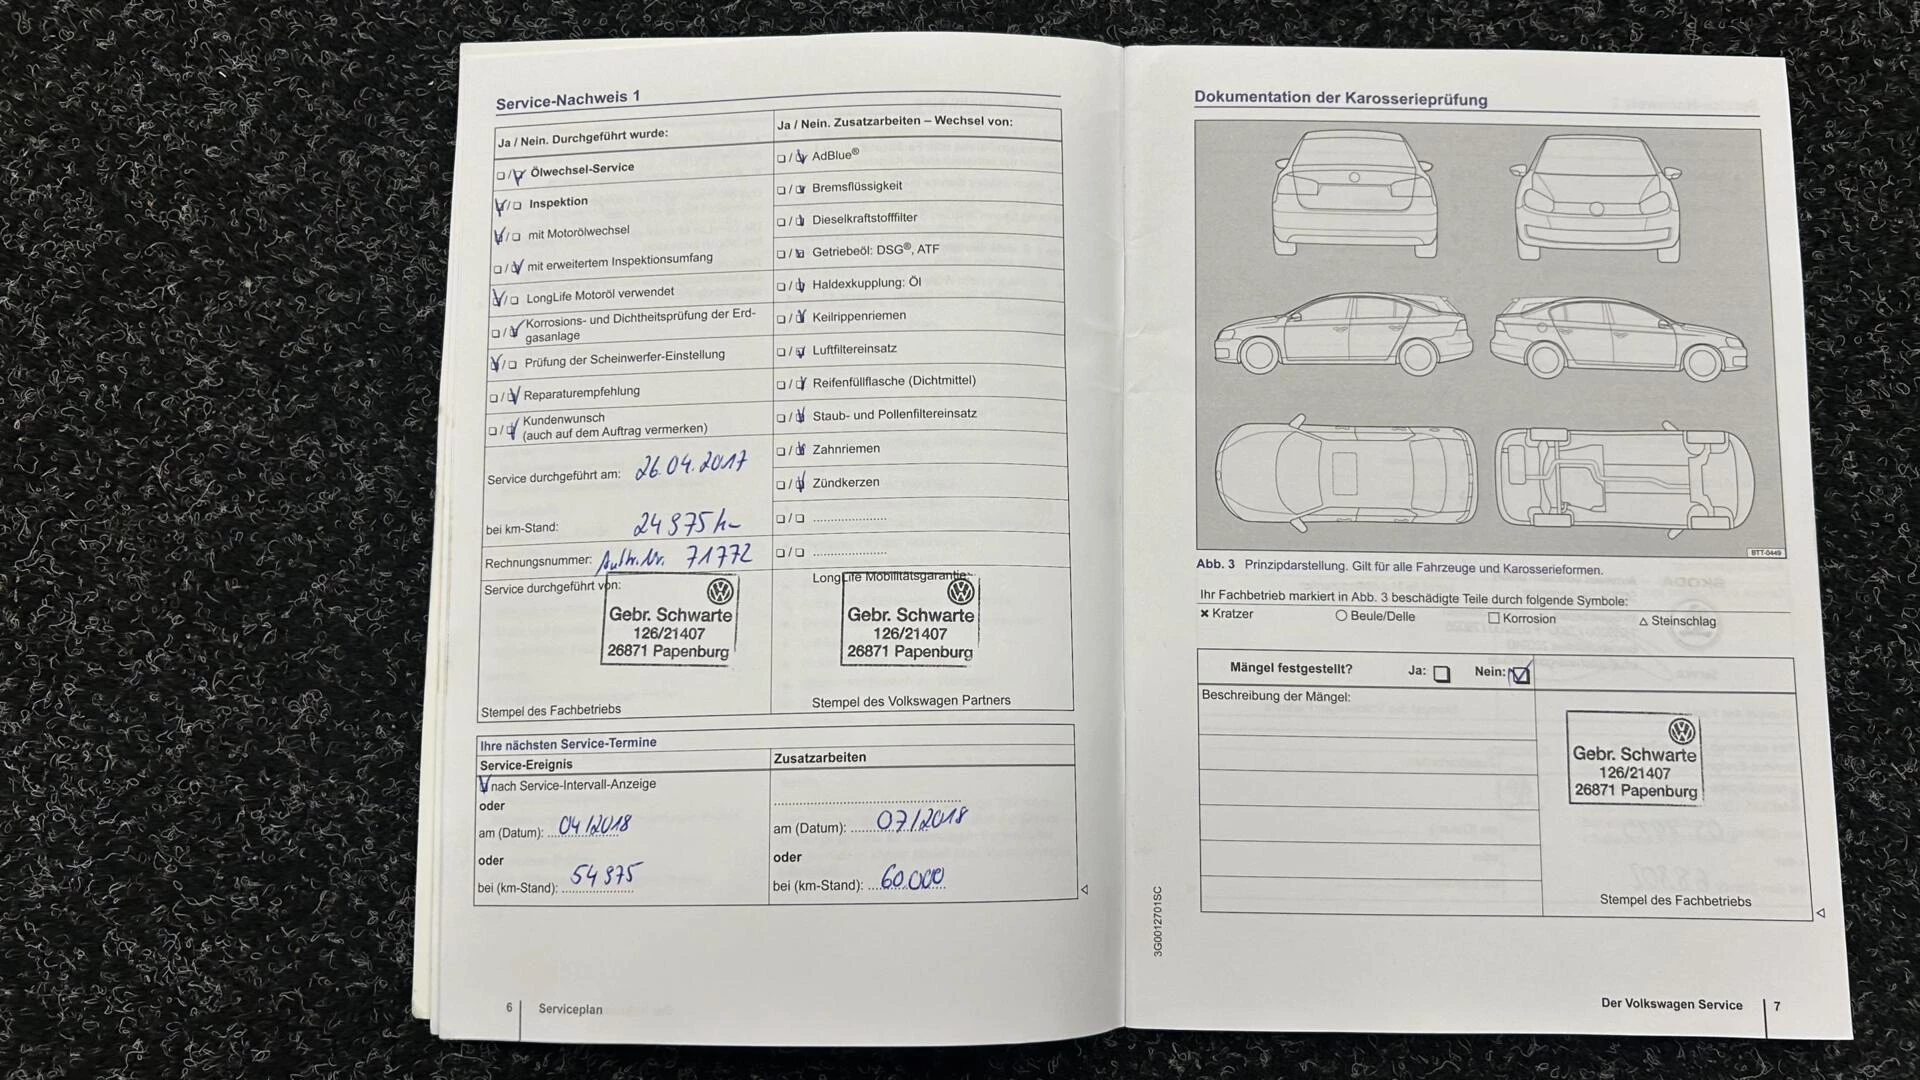 Service-Nachweis 1
Ja / Nein. Durchgeführt wurde:
❑/❑ Ölwechsel-Service
❑/❑ Inspektion
❑/❑ mit Motorölwechsel
❑/❑ mit erweitertem Inspektionsumfang
❑/❑ LongLife Motoröl verwendet
❑/❑ Korrosions- und Dichtheitsprüfung der Erd-
gasanlage
❑/❑ Prüfung der Scheinwerfer-Einstellung
❑/❑ Reparaturempfehlung
❑/❑ Kundenwunsch
(auch auf dem Auftrag vermerken)
Service durchgeführt am: 26.04.2017
bei km-Stand: 24975 km
Rechnungsnummer: Auftr. Nr. 71772
Service durchgeführt von:
Gebr. Schwarte
126/21407
26871 Papenburg
Stempel des Fachbetriebs
Ja / Nein. Zusatzarbeiten – Wechsel von:
❑/❑ AdBlue®
❑/❑ Bremsflüssigkeit
❑/❑ Dieselkraftstofffilter
❑/❑ Getriebeöl: DSG®, ATF
❑/❑ Haldexkupplung: Öl
❑/❑ Keilrippenriemen
❑/❑ Luftfiltereinsatz
❑/❑ Reifenfüllflasche (Dichtmittel)
❑/❑ Staub- und Pollenfiltereinsatz
❑/❑ Zahnriemen
❑/❑ Zündkerzen
❑/❑ .....................
❑/❑ .....................
LongLife Mobilitätsgarantie:
Gebr. Schwarte
126/21407
26871 Papenburg
Stempel des Volkswagen Partners
Ihre nächsten Service-Termine
Service-Ereignis
nach Service-Intervall-Anzeige
oder
am (Datum): 04/2018
oder
bei (km-Stand): 54975
Zusatzarbeiten
am (Datum): 07/2018
oder
bei (km-Stand): 60.000
6 Serviceplan
Dokumentation der Karosserieprüfung
BTT-0449
Abb. 3 Prinzipdarstellung. Gilt für alle Fahrzeuge und Karosserieformen.
Ihr Fachbetrieb markiert in Abb. 3 beschädigte Teile durch folgende Symbole:
✖ Kratzer ○ Beule/Delle □ Korrosion △ Steinschlag
Mängel festgestellt? Ja: ❑ Nein: ❑
Beschreibung der Mängel:
Gebr. Schwarte
126/21407
26871 Papenburg
Stempel des Fachbetriebs
3G0012701SC
Der Volkswagen Service 7